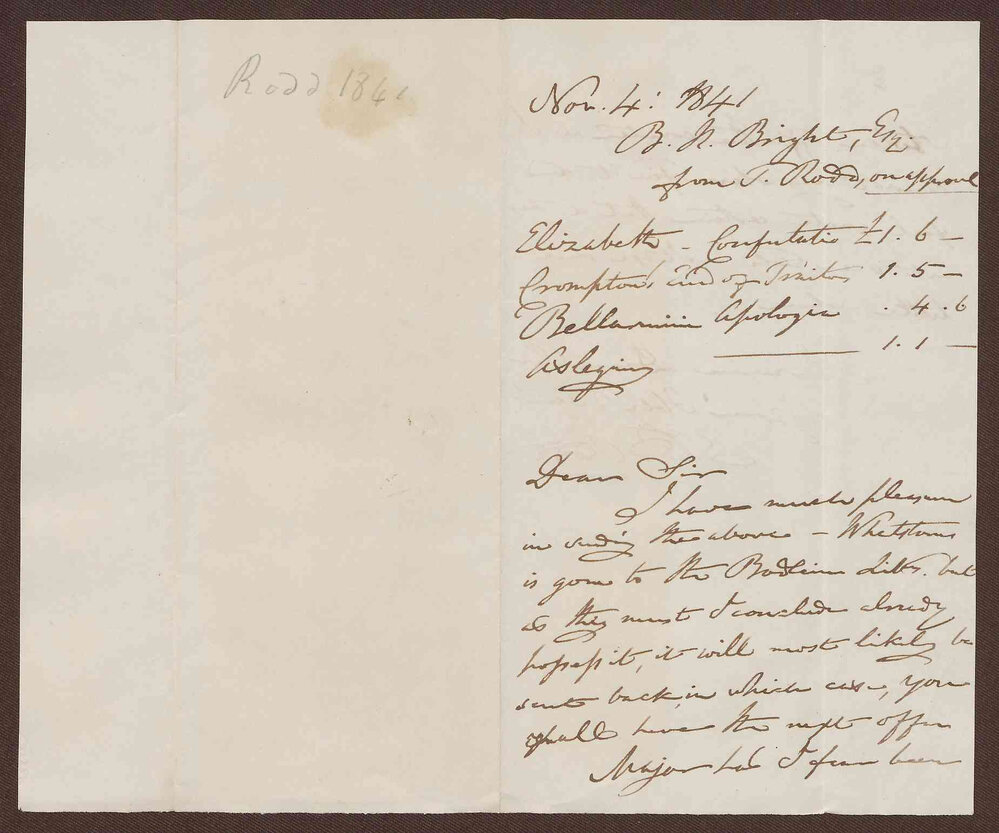 Rodd 1841
Nov. 4: 1841
B. H. Bright, Esq.
from T. Rodd, on approval
Elizabeth - Confutatio £1. 6 -
Crompton's of Traitors 1. 5 -
Bellarmini Apologia . 4. 6
Aslegius 1. 1 -
Dear Sir
I have much pleasure
in sending the above - Whetstone
is gone to the Bodleian Liby. but
as they must I conclude already
possess it, it will most likely be
sent back, in which case, you
shall have the next offer
Major has I fear been